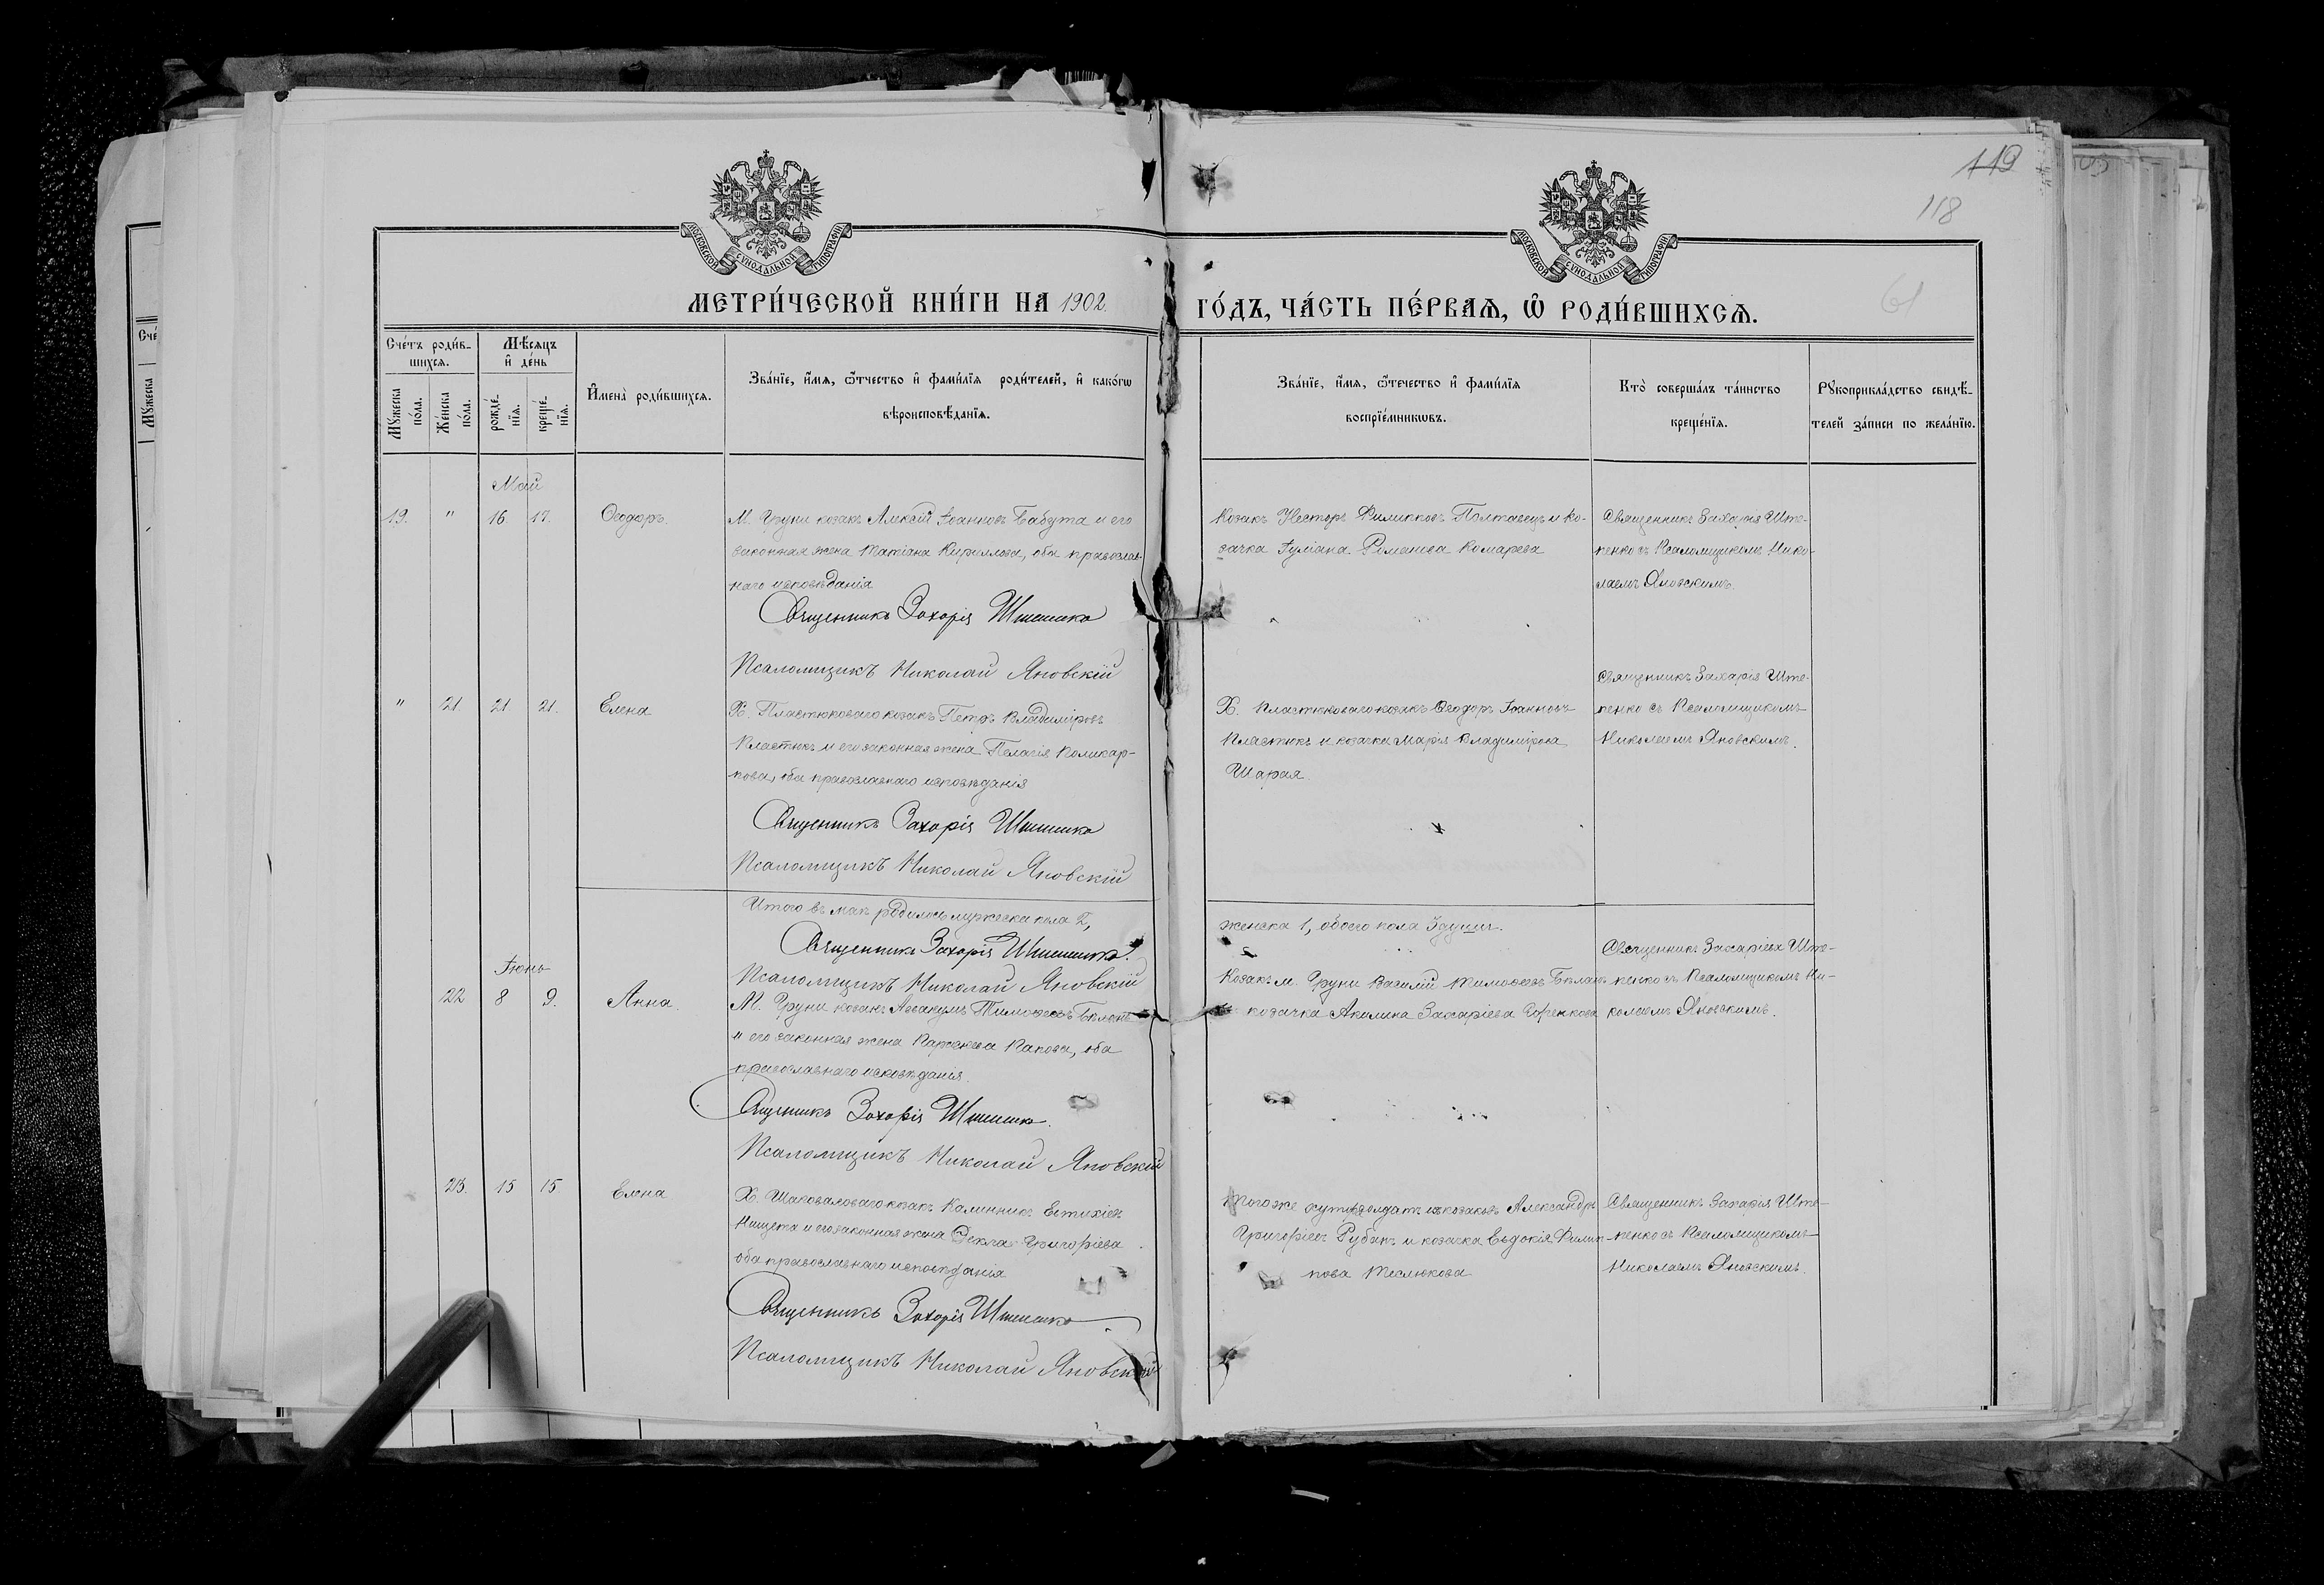 119
118
61
МОСКОВСКОЙ СѴНОДАЛЬНОЙ ТИПОГРАФІИ
МОСКОВСКОЙ СѴНОДАЛЬНОЙ ТИПОГРАФІИ
МЕТРИ́ЧЕСКОЙ КНИ́ГИ НА 1902
ГО́ДЪ, ЧА́СТЬ ПЕ́РВАѦ, Ѡ҆ РОДИ́ВШИХСѦ.
Сче́тъ роди́в-
шихсѧ.
Мѣ́сѧцъ
и҆ де́нь
Мꙋ́жеска
по́ла.
Же́нска
по́ла.
рожде́-
нїѧ.
креще́-
нїѧ.
И҆мена̀ роди́вшихсѧ.
Зва́нїе, и҆́мѧ, ѻ҆́тчество и҆ фами́лїѧ роди́телей, и҆ како́гѡ
вѣроисповѣ́данїѧ.
Зва́нїе, и҆́мѧ, ѻ҆те́чество и҆ фами́лїѧ
воспрїе́мникѡвъ.
Кто̀ соверша́лъ та́инство
креще́нїѧ.
Рꙋкоприкла́дство свидѣ́-
телей за́писи по жела́нїю.
Май
19. " 16. 17. Ѳеодоръ.
М. Груни козакъ Алексій Іоанновъ Бабута и его
законная жена Татіана Кириллова, оба православ-
наго исповѣданія
Священникъ Захарія Штепенко
Псаломщикъ Николай Яновскій
Козакъ Несторъ Филипповъ Полтавецъ и ко-
зачка Іуліана Романова Комарева
Священникъ Захарія Ште-
пенко съ Псаломщикомъ Нико-
лаемъ Яновскимъ.
" 21. 21 21. Елена
Х. Пластюковаго козакъ Петръ Владиміровъ
Пластюкъ и его законная жена Пелагія Поликар-
пова, оба православнаго исповѣданія
Священникъ Захарія Штепенко
Псаломщикъ Николай Яновскій
Х. Пластюковаго козакъ Ѳеодоръ Іоанновъ
Пластюкъ и козачка Марія Владимірова
Шарая.
Священникъ Захарія Ште-
пенко съ Псаломщикомъ
Николаемъ Яновскимъ.
Итого въ маѣ родилось мужеска пола 2,
женска 1, обоего пола 3 души.
Священникъ Захарія Штепенко.
Псаломщикъ Николай Яновскій
Іюнь
22 8 9. Анна.
М. Груни козакъ Аввакумъ Тимоѳеевъ
и его законная жена Параскева Папова, оба
православнаго исповѣданія.
Священникъ Захарія Штепенко.
Псаломщикъ Николай Яновскій
Козакъ м. Груни Василій Тимоѳеевъ
козачка Акилина Захаріева
Священникъ Захарія Ште-
пенко съ Псаломщикомъ Ни-
колаемъ Яновскимъ.
23. 15 15. Елена
Х. Шаповаловаго козакъ Каллиникъ Евтихіевъ
Нищета и его законная жена Ѳекла Григоріева
оба православнаго исповѣданія
Священникъ Захарія Штепенко
Псаломщикъ Николай Яновскій
Того же хутора солдатъ изъ козаковъ Александръ
Григоріевъ Рубанъ и козачка Евдокія Филип-
пова Теслюкова
Священникъ Захарія Ште-
пенко съ Псаломщикомъ
Николаемъ Яновскимъ.